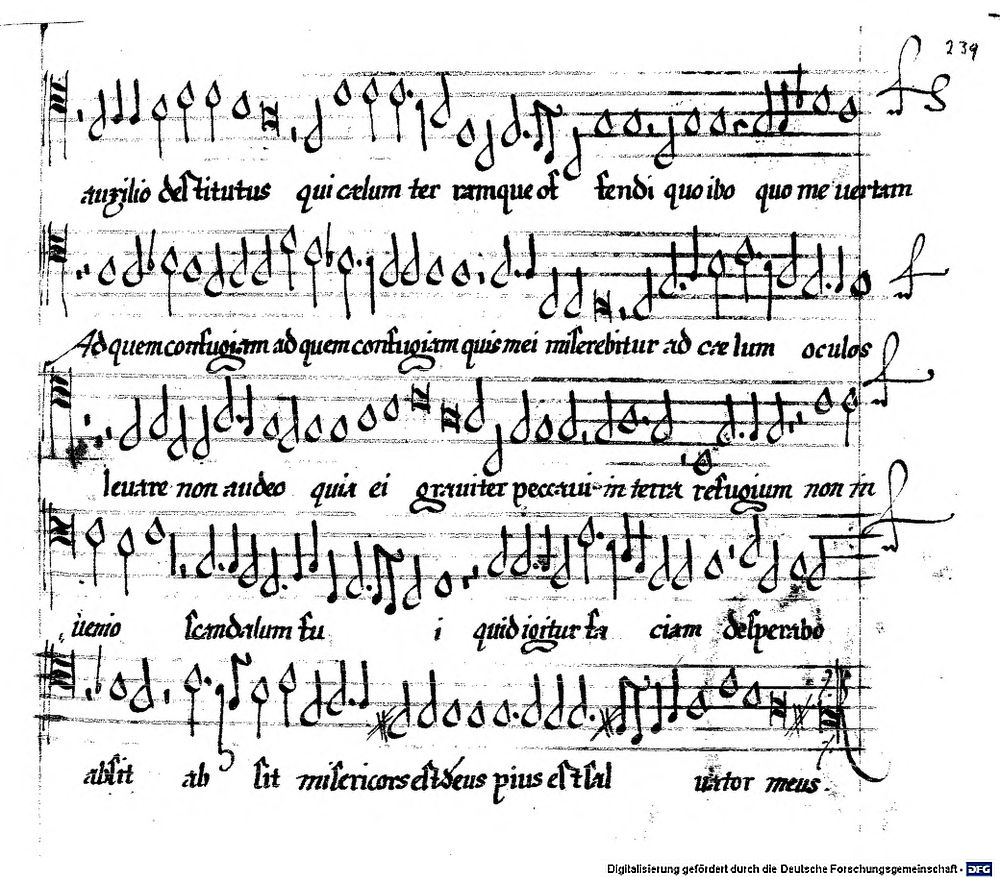 239
auxilio destitutus qui cælum ter ramque of fendi quo ibo quo me uertam
Ad quem confugiam ad quem confugiam quis mei miserebitur ad cæ lum oculos
leuare non audeo quia ei grauiter peccaui in terra refugium non in
uenio scandalum fu i quid igitur fa ciam desperabo
absit ab sit misericors est deus pius est sal uator meus.
Digitalisierung gefördert durch die Deutsche Forschungsgemeinschaft - DFG